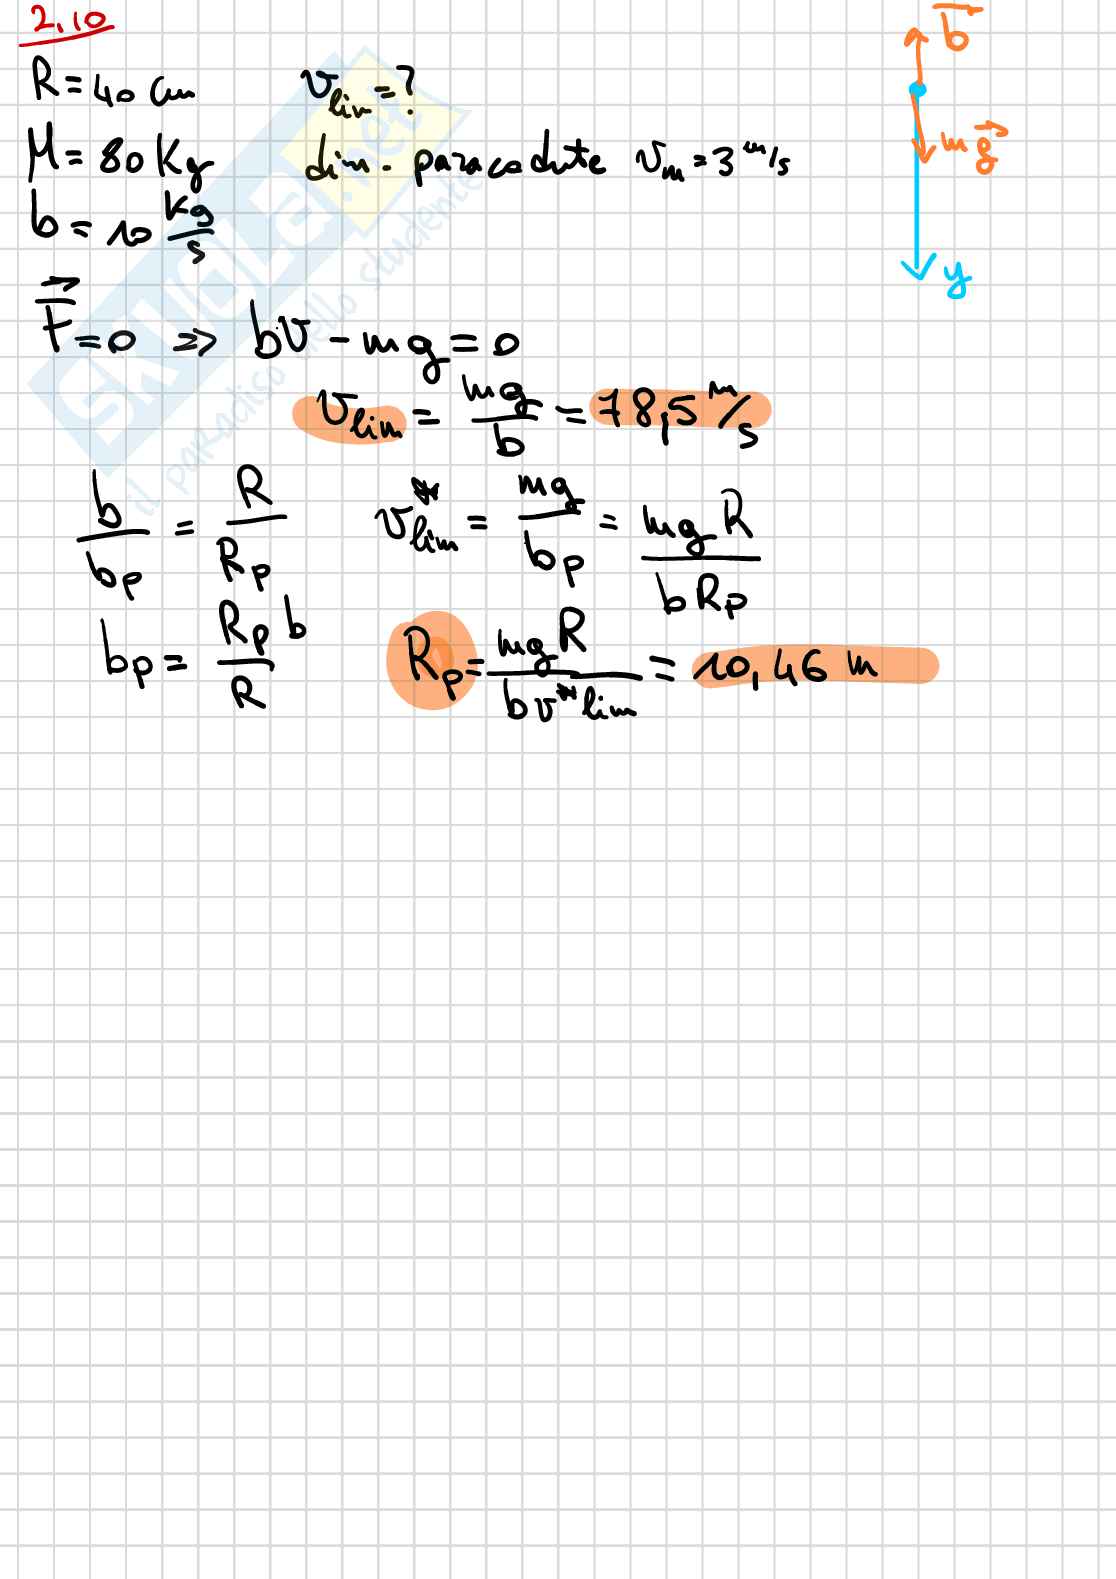 2.10
R = 40 cm
v_lim = ?
M = 80 Kg
dim. paracadute v_m = 3 m/s
b = 10 kg/s
F = 0 => bv - mg = 0
v_lim = mg/b = 78,5 m/s
b/b_p = R/R_p
v*_lim = mg/b_p = mgR/bR_p
b_p = R_p b/R
R_p = mgR/bv*lim = 10,46 m
b
mg
y
SKUOLA.net
il paradiso dello studente